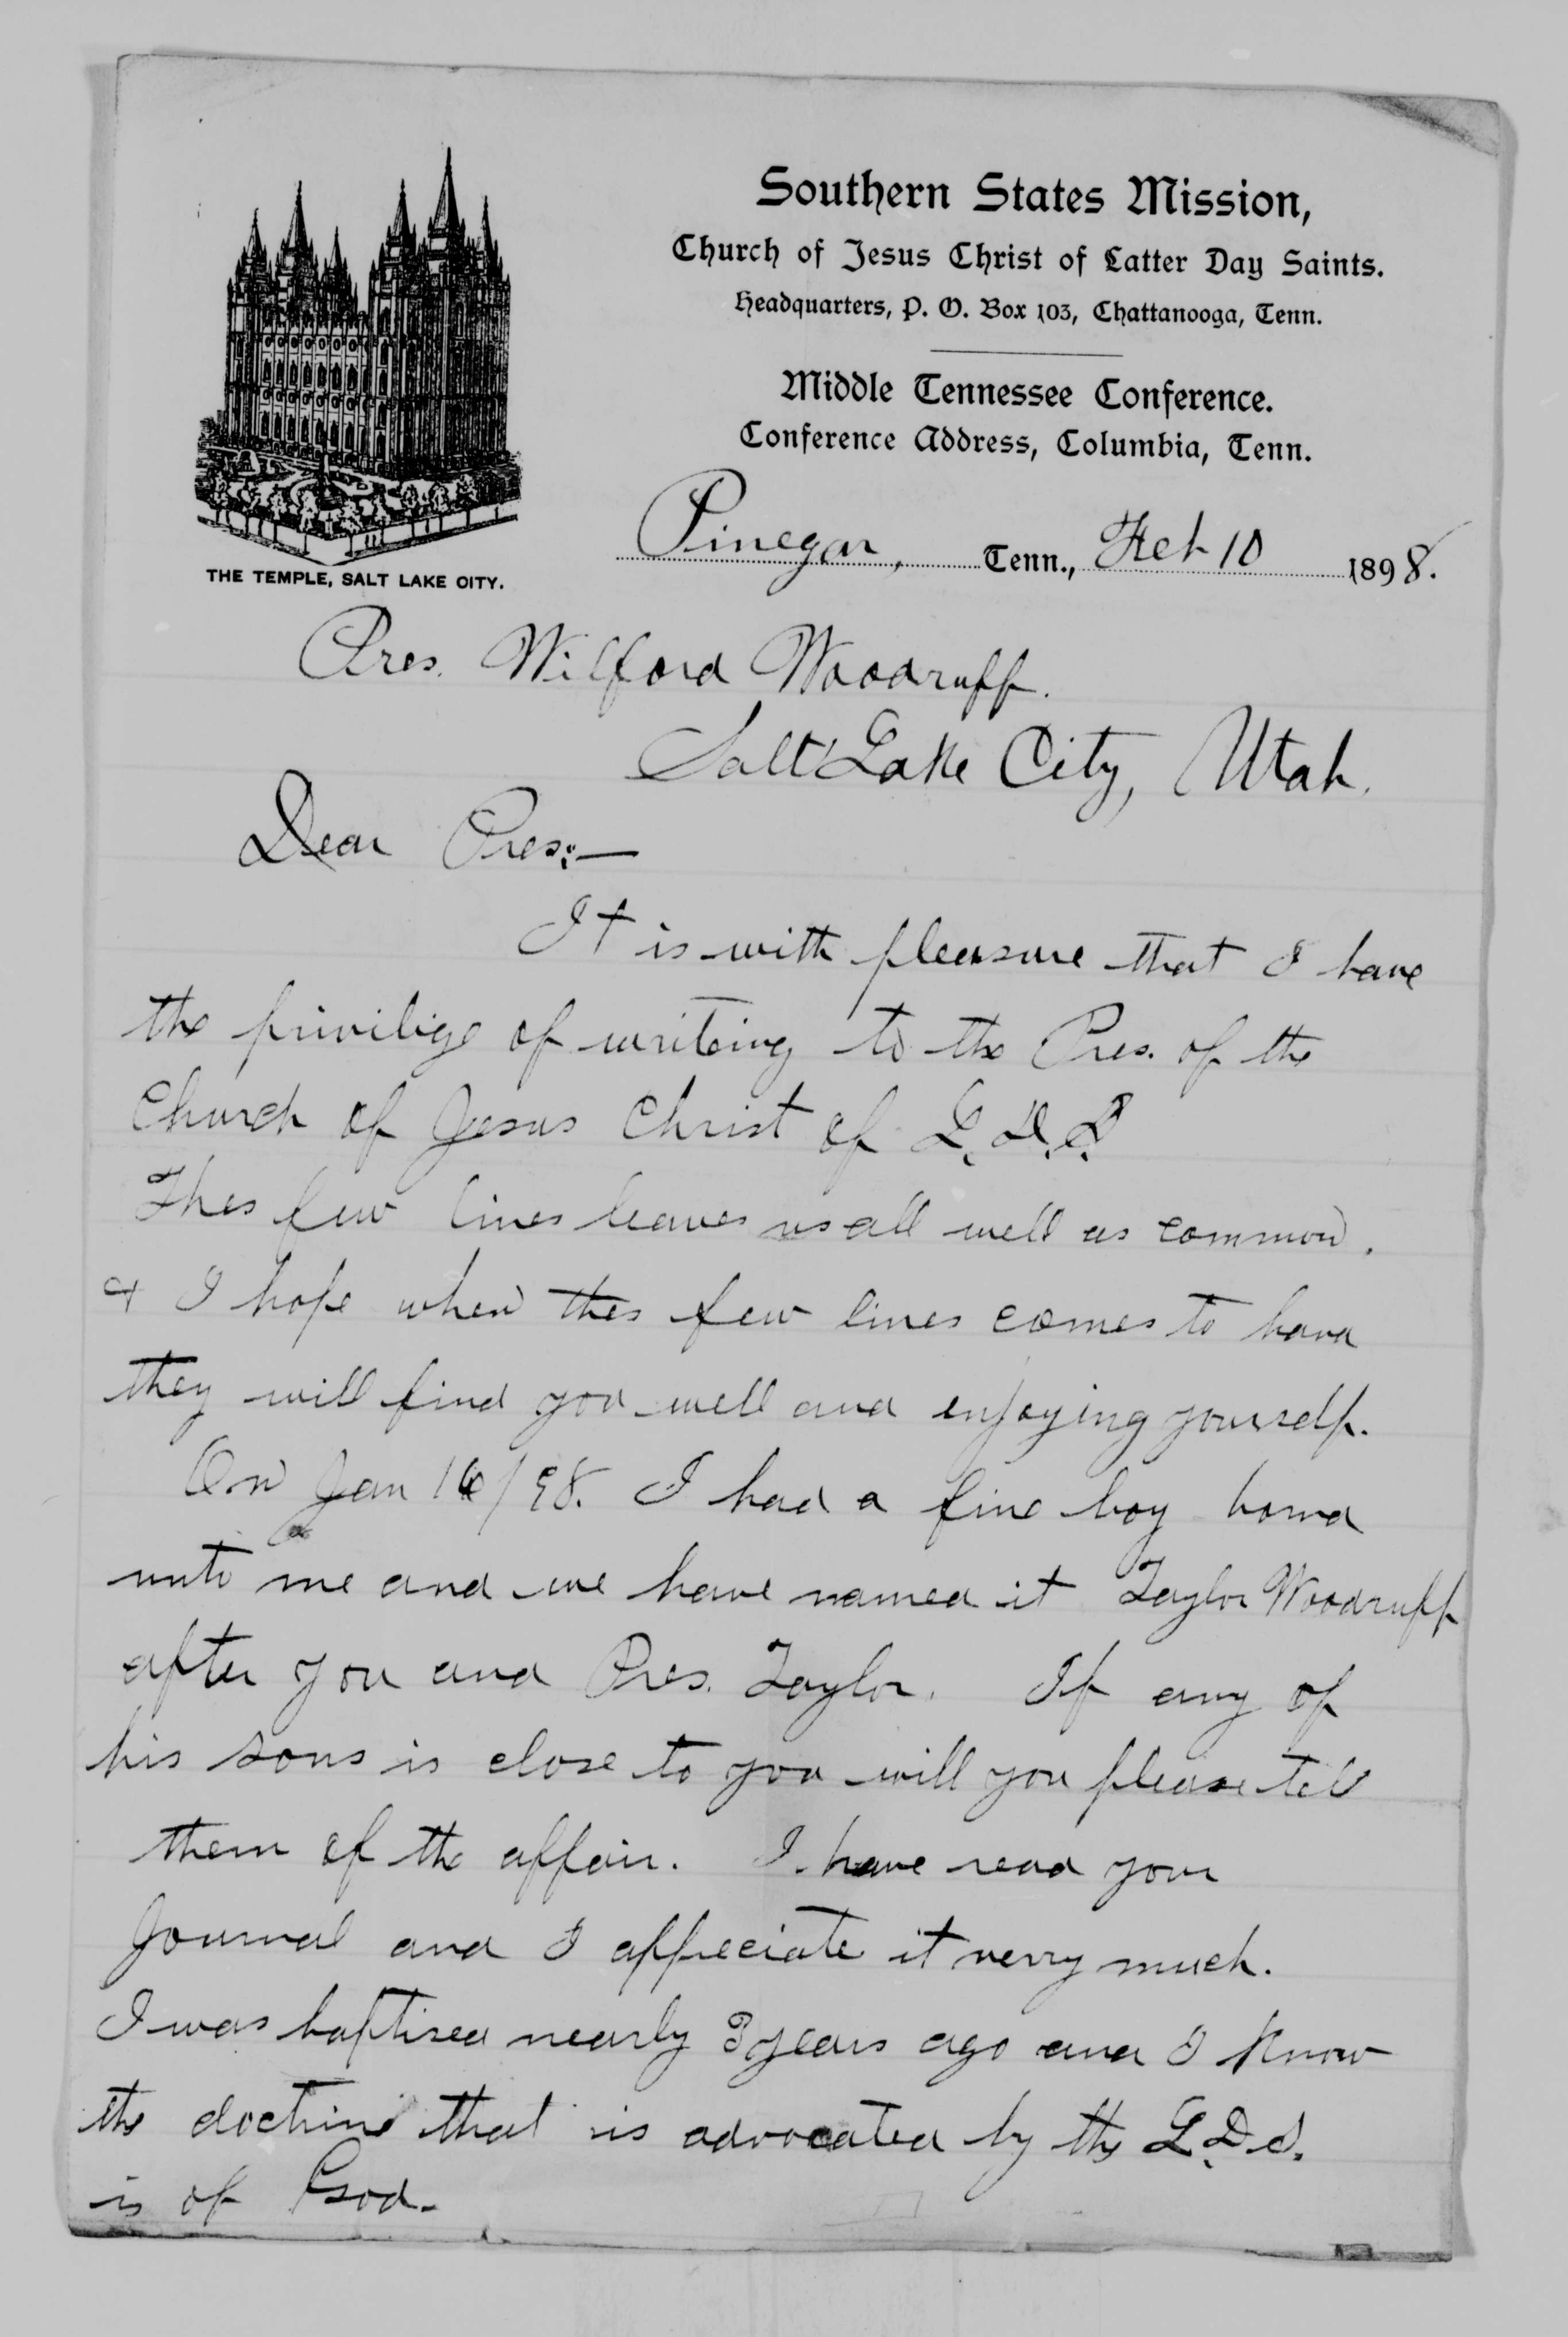 Southern States Mission,
Church of Jesus Christ of Latter Day Saints.
Headquarters, P. O. Box 103, Chattanooga, Tenn.
Middle Tennessee Conference.
Conference Address, Columbia, Tenn.
THE TEMPLE, SALT LAKE CITY.
Pinegar, Tenn., Feb 10 1898.
Pres. Wilford Woodruff.
Salt Lake City, Utah.
Dear Pres:—
It is with pleasure that I have
the privilige of writeing to the Pres. of the
Church of Jesus Christ of L. D. S.
Thes few lines leaves us all well as common.
& I hope when thes few lines comes to hand
they will find you well and enjoying yourself.
On Jan 16/98. I had a fine boy bornd
unto me and we have named it Taylor Woodruff
after you and Pres. Taylor. If any of
his sons is close to you will you please tell
them of the affair. I have read your
Journal and I appreciate it verry much.
I was baptised nearly 3 years ago and I know
the doctrine that is advocated by the L. D. S.
is of God.